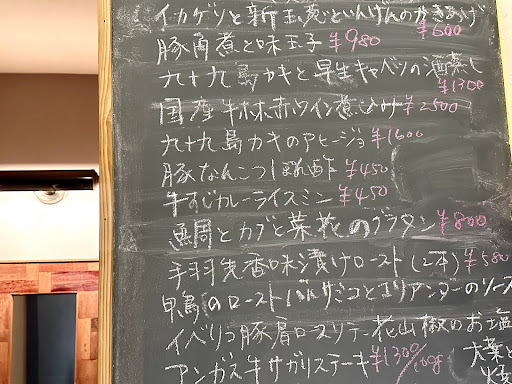 イカゲソと新玉葱といんげんのかきあげ ¥600
豚角煮と味玉子 ¥980
九十九島カキと早生キャベツの酒蒸し ¥1300
国産牛ホホ赤ワイン煮込み ¥2500
九十九島カキのアヒージョ ¥1600
豚なんこつしぽん酢 ¥450
牛すじカレーライスミン ¥450
鯛とカブと菜花のグラタン ¥800
手羽先香味漬けロースト(2本) ¥580
鴨のローストバルサミコとコリアンダーのソース
イベリコ豚肩ロースソテー 花山椒のお塩
アンガス牛サガリステーキ ¥1300/100g
大葉と